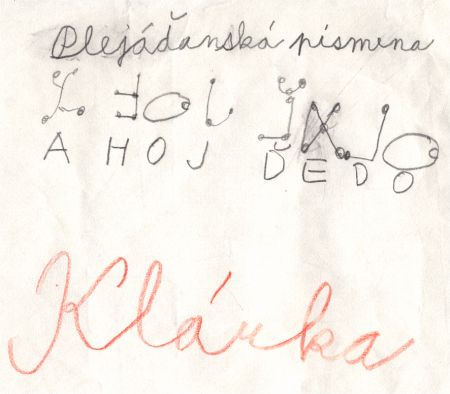 Plejáďanská písmena
AHOJ ĎEDO
Klárka